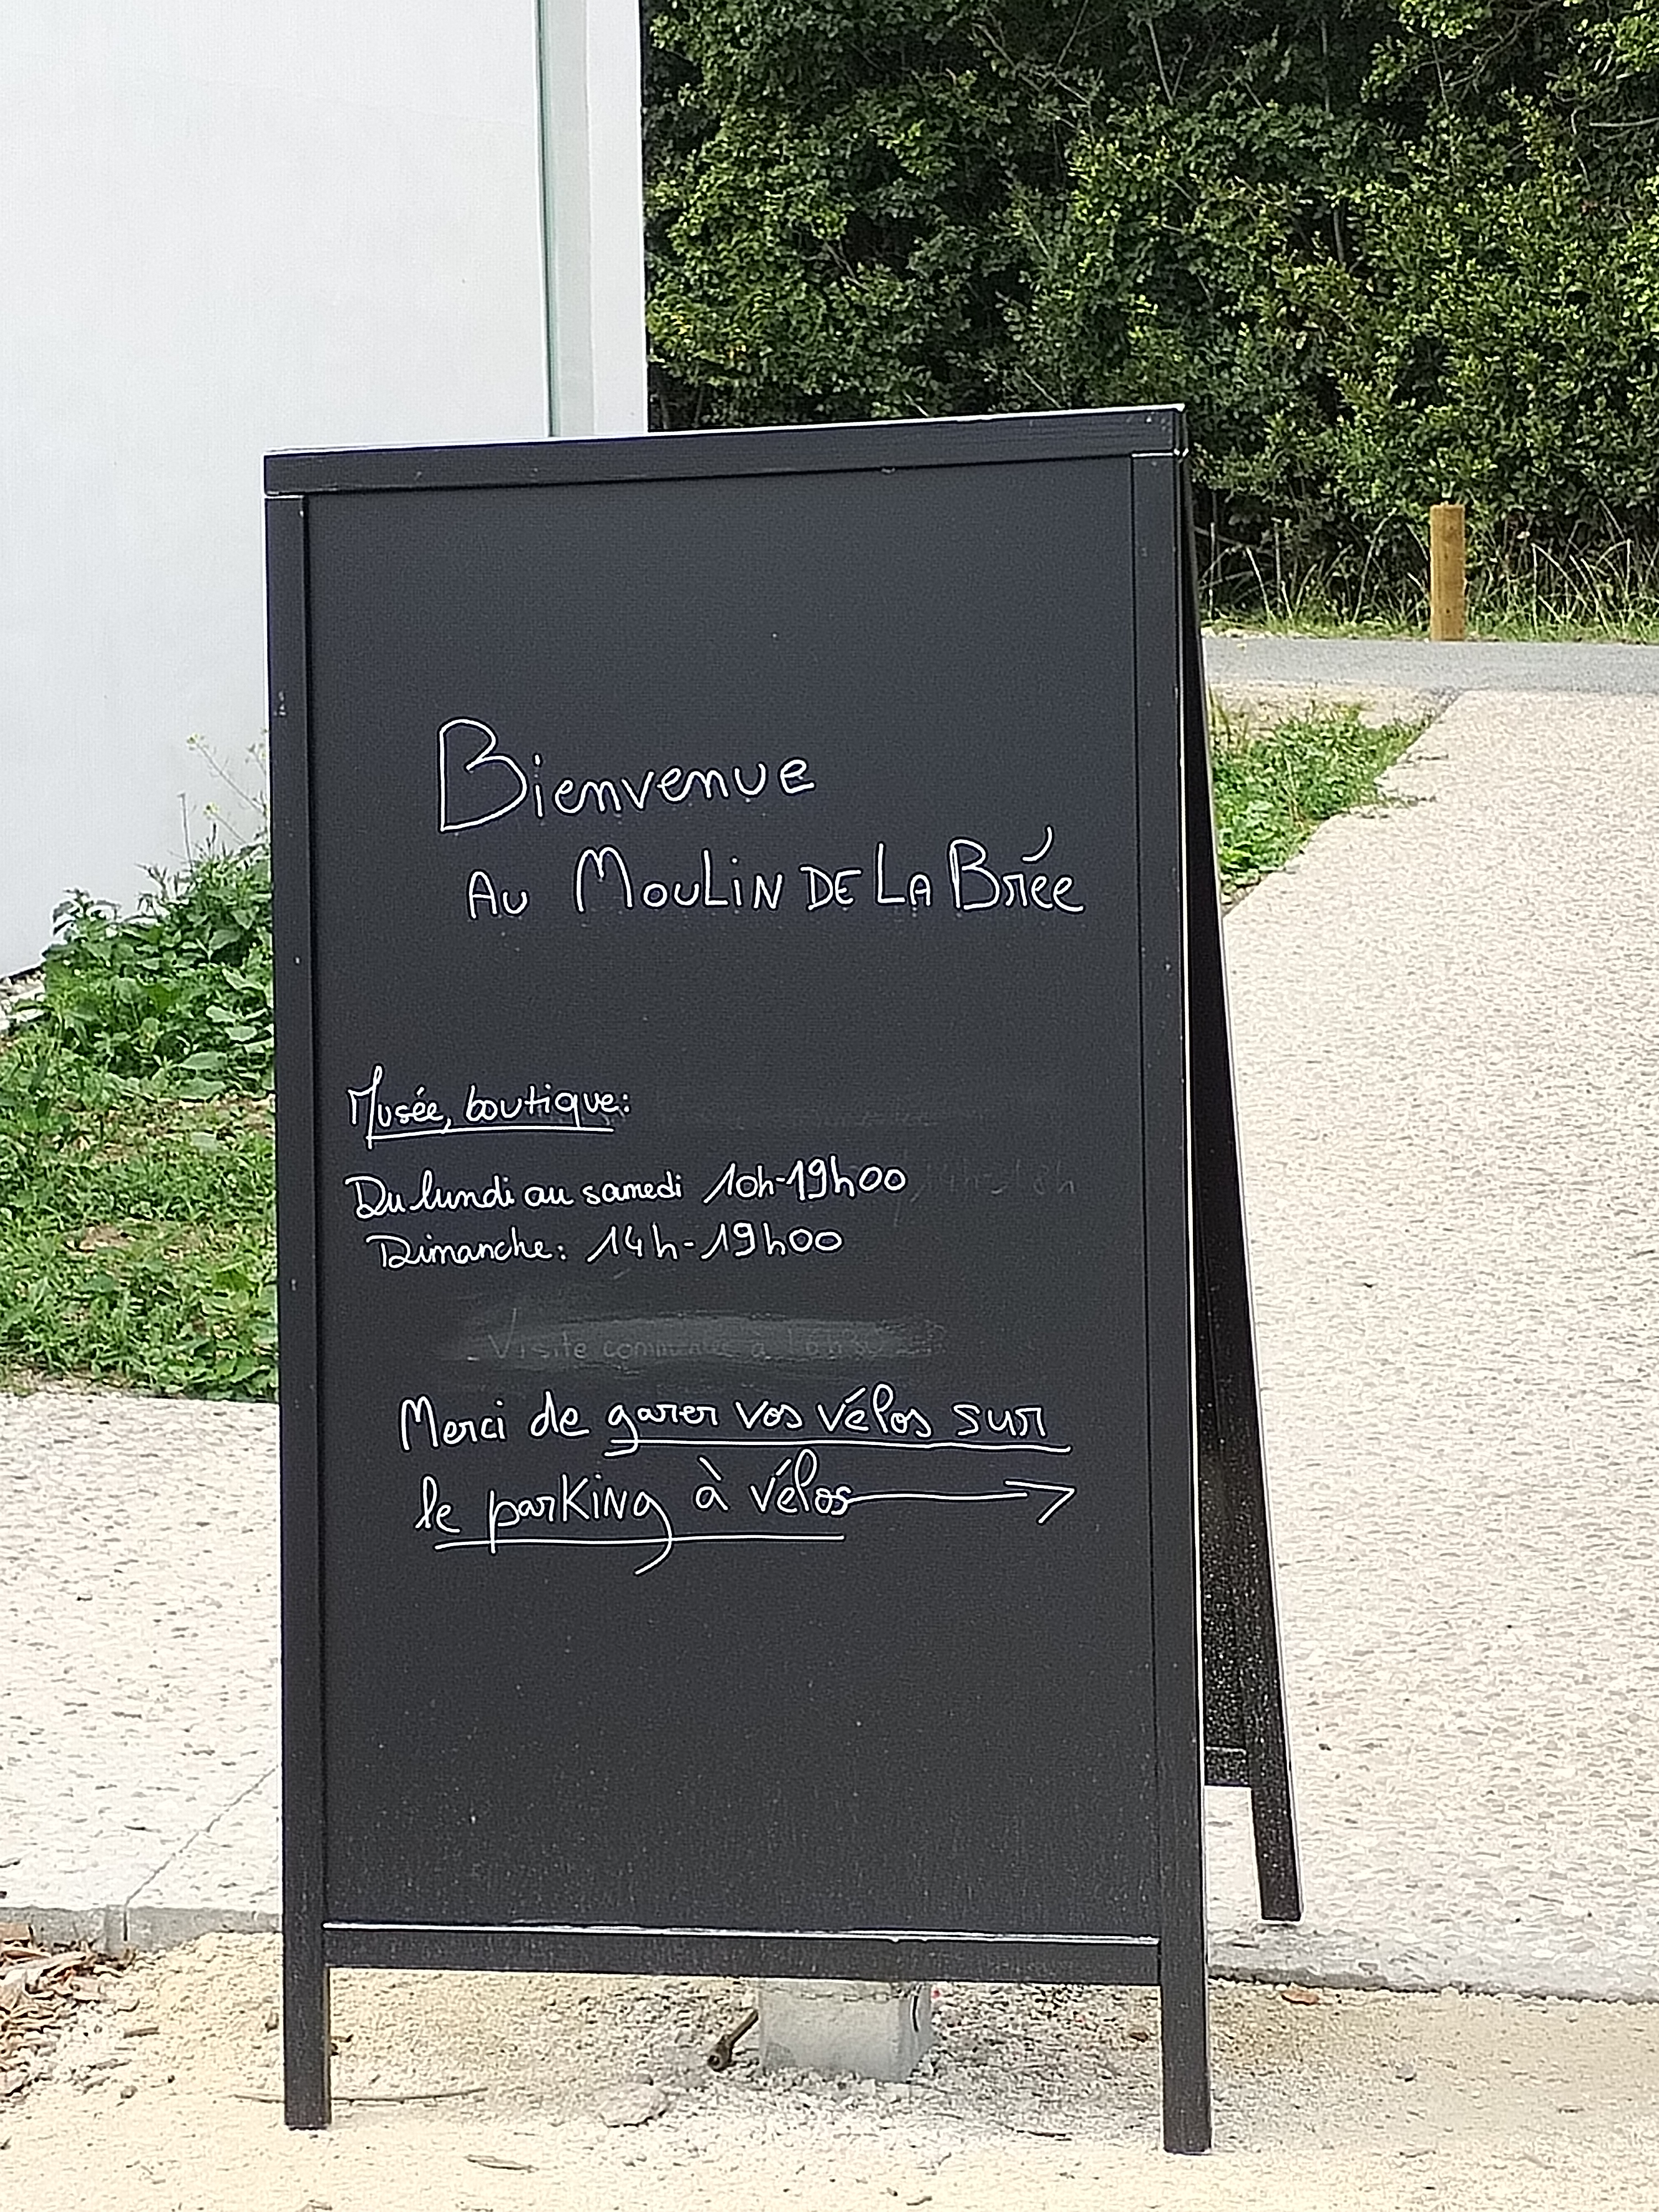 Bienvenue
Au Moulin de La Brée
Musée, boutique:
Du lundi au samedi 10h-19h00
Dimanche: 14h-19h00
Visite commentée à 16h30
Merci de garer vos vélos sur
le parking à vélos